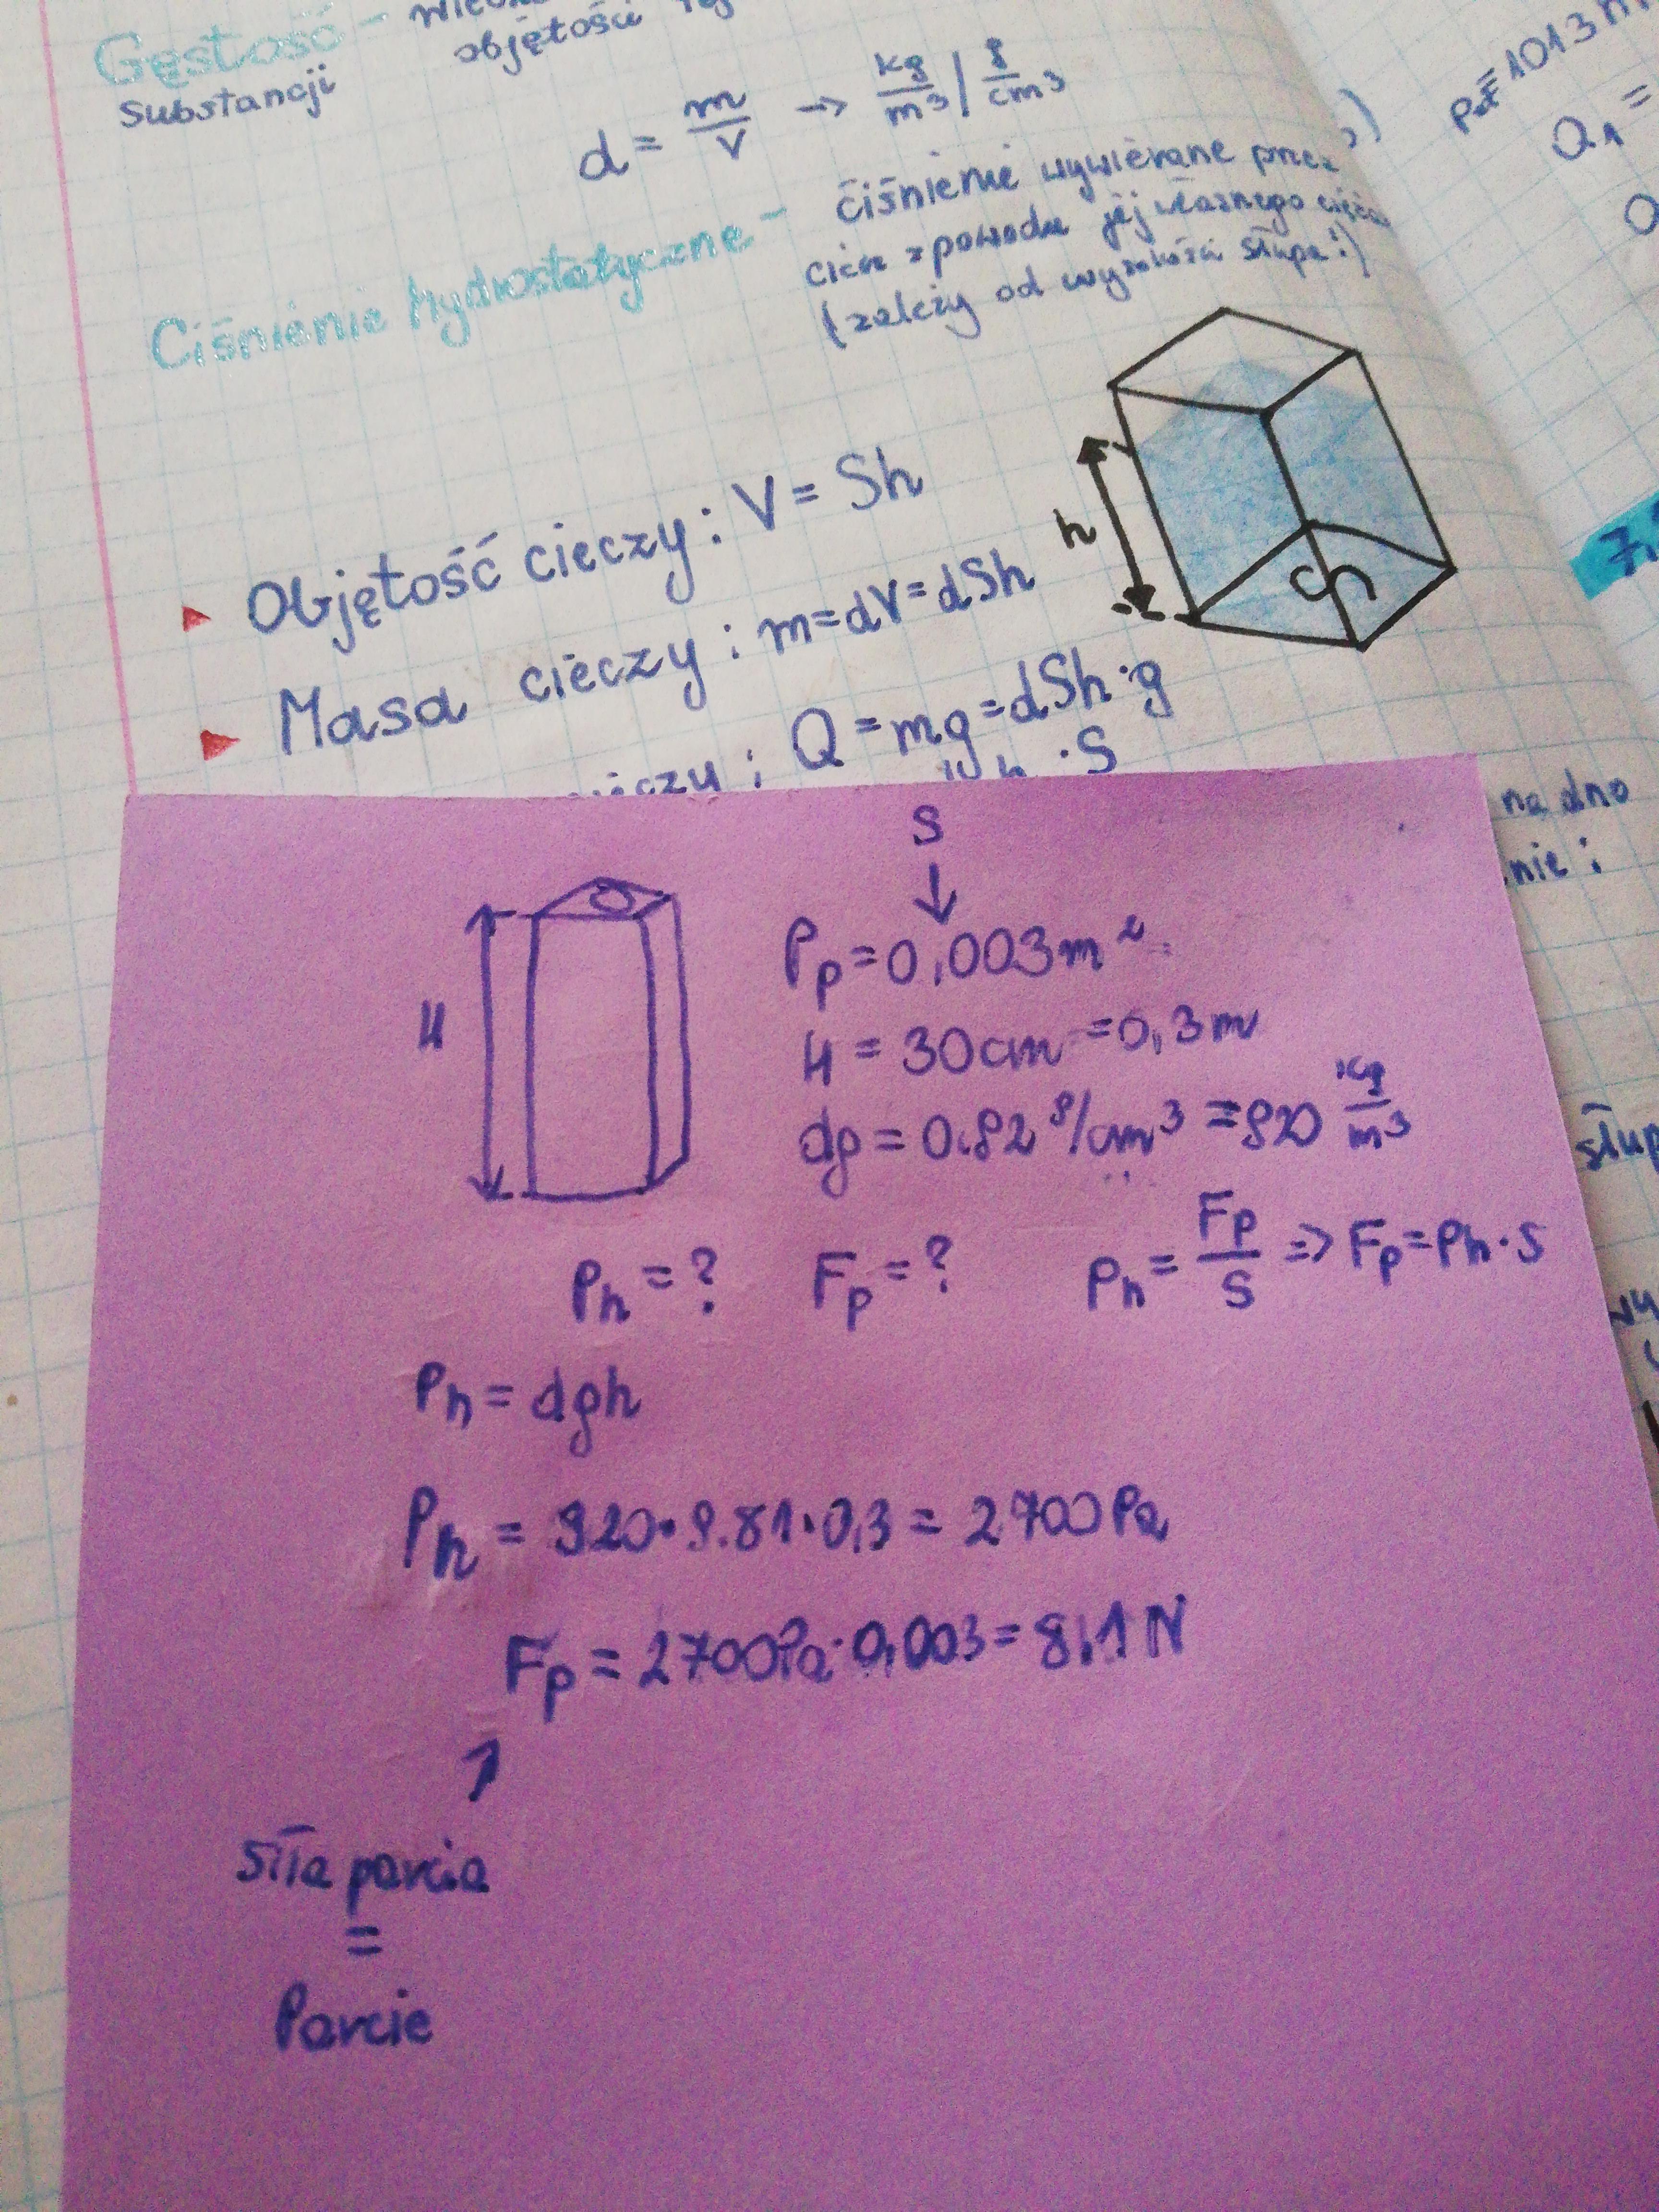 Gęstość -
substancji objętości
d = m/V → kg/m³ | g/cm³
Ciśnienie hydrostatyczne - ciśnienie wywierane przez
ciecz z powodu jej własnego
(zależy od wysokości słupa!)
▸ Objętość cieczy: V = Sh
h
S
▸ Masa cieczy: m = dV = dSh
cieczy: Q = mg = dSh·g
h · S
pat = 1013
Q₁ =
na dno
nie:
słup
S
↓
Pp = 0,003 m²
H
H = 30cm = 0,3m
dg = 0.92 g/cm³ = 920 kg/m³
Ph = ? Fp = ? Ph = Fp/S => Fp = Ph·S
Ph = dgh
Ph = 920·9.81·0,3 = 2700 Pa
Fp = 2700Pa·0,003 = 8,1 N
Siła parcia
=
Parcie